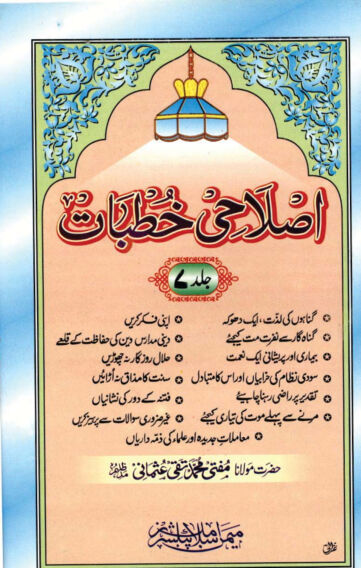 اصلاحی خطبات
جلد ۷
گناہوں کی لذت، ایک دھوکہ
اپنی فکر کریں
گناہ گار سے نفرت مت کیجئے
دینی مدارس دین کی حفاظت کے قلعے
بیماری اور پریشانی ایک نعمت
حلال روزگار نہ چھوڑیں
سودی نظام کی خرابیاں اور اس کا متبادل
سنت کا مذاق نہ اُڑائیں
تقدیر پر راضی رہنا چاہیئے
فتنہ کے دور کی نشانیاں
مرنے سے پہلے موت کی تیاری کیجئے
غیر ضروری سوالات سے پرہیز کریں
معاملاتِ جدیدہ اور علماء کی ذمہ داریاں
حضرت مولانا مفتی محمد تقی عثمانی مدظلہم
میمن اسلامک پبلشرز